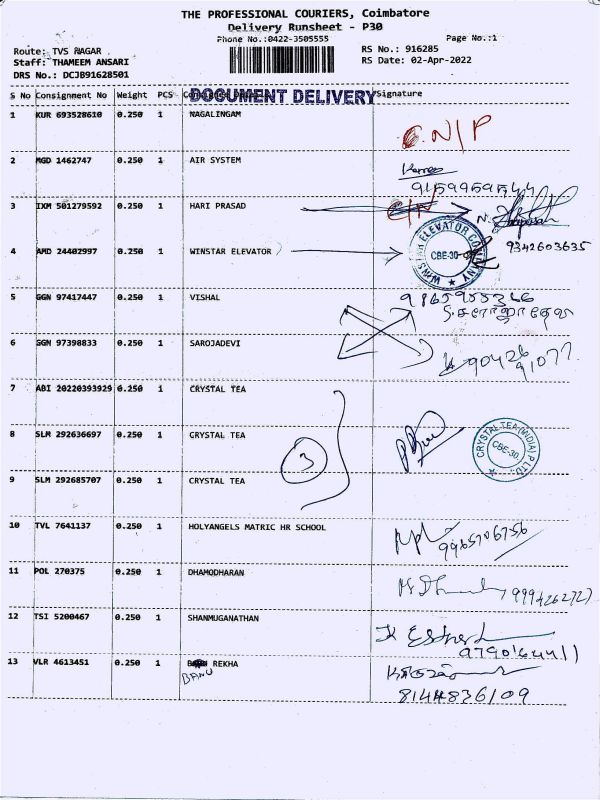 THE PROFESSIONAL COURIERS, Coimbatore
Delivery Runsheet - P30
Phone No.:0422-3505555
Page No.:1
Route: TVS NAGAR
RS No.: 916285
Staff: THAMEEM ANSARI
RS Date: 02-Apr-2022
DRS No.: DCJB91628501
DOCUMENT DELIVERY
S No Consignment No Weight PCS Signature
1 KUR 693528610 0.250 1 NAGALINGAM
2 MGD 1462747 0.250 1 AIR SYSTEM
3 IXM 501279592 0.250 1 HARI PRASAD
4 AMD 24402997 0.250 1 WINSTAR ELEVATOR 9342603635
ELEVATOR COMPANY
CBE-30
5 GGN 97417447 0.250 1 VISHAL
6 GGN 97398833 0.250 1 SAROJADEVI
90426
91077
7 ABI 20220393929 0.250 1 CRYSTAL TEA
3
8 SLM 292636697 0.250 1 CRYSTAL TEA
CRYSTAL TEA (INDIA) P LTD.
CBE-30.
9 SLM 292685707 0.250 1 CRYSTAL TEA
10 TVL 7641137 0.250 1 HOLYANGELS MATRIC HR SCHOOL
9965706756
11 POL 270375 0.250 1 DHAMODHARAN
12 TSI 5200467 0.250 1 SHANMUGANATHAN
13 VLR 4613451 0.250 1 REKHA
BANU
8144836109